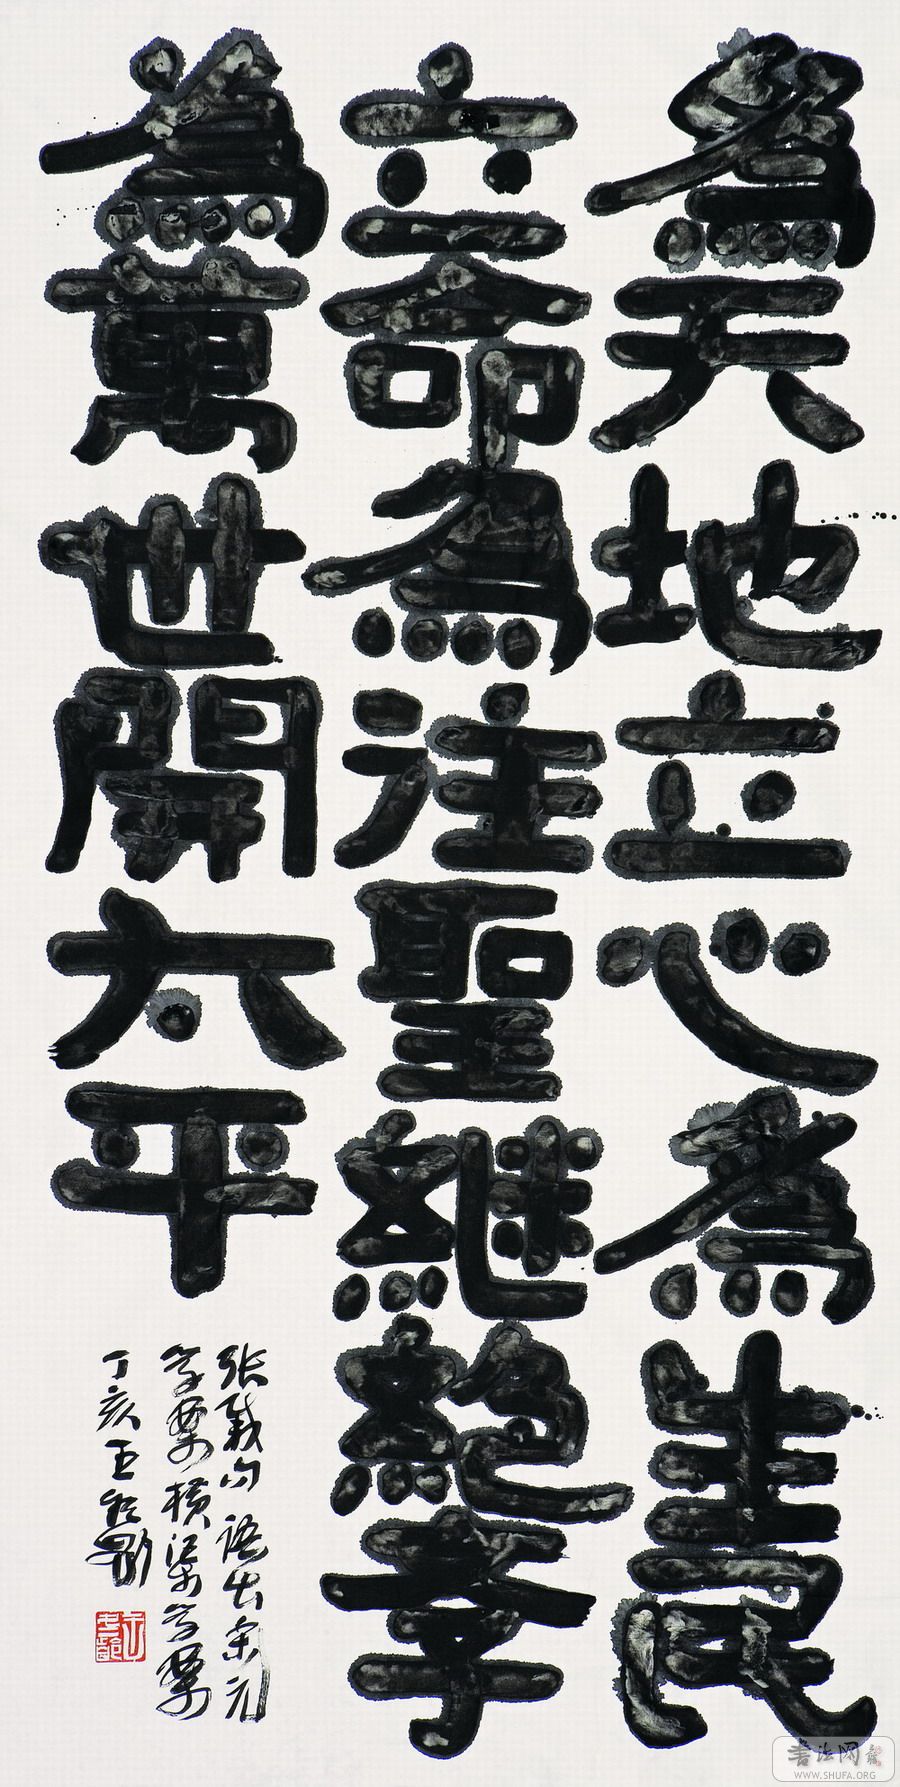 為天地立心為生民
立命為往聖繼絶斈
為萬世開太平
张載句語出宋元
学案横渠学案
丁亥王
書法网
WWW.SHUFA.ORG